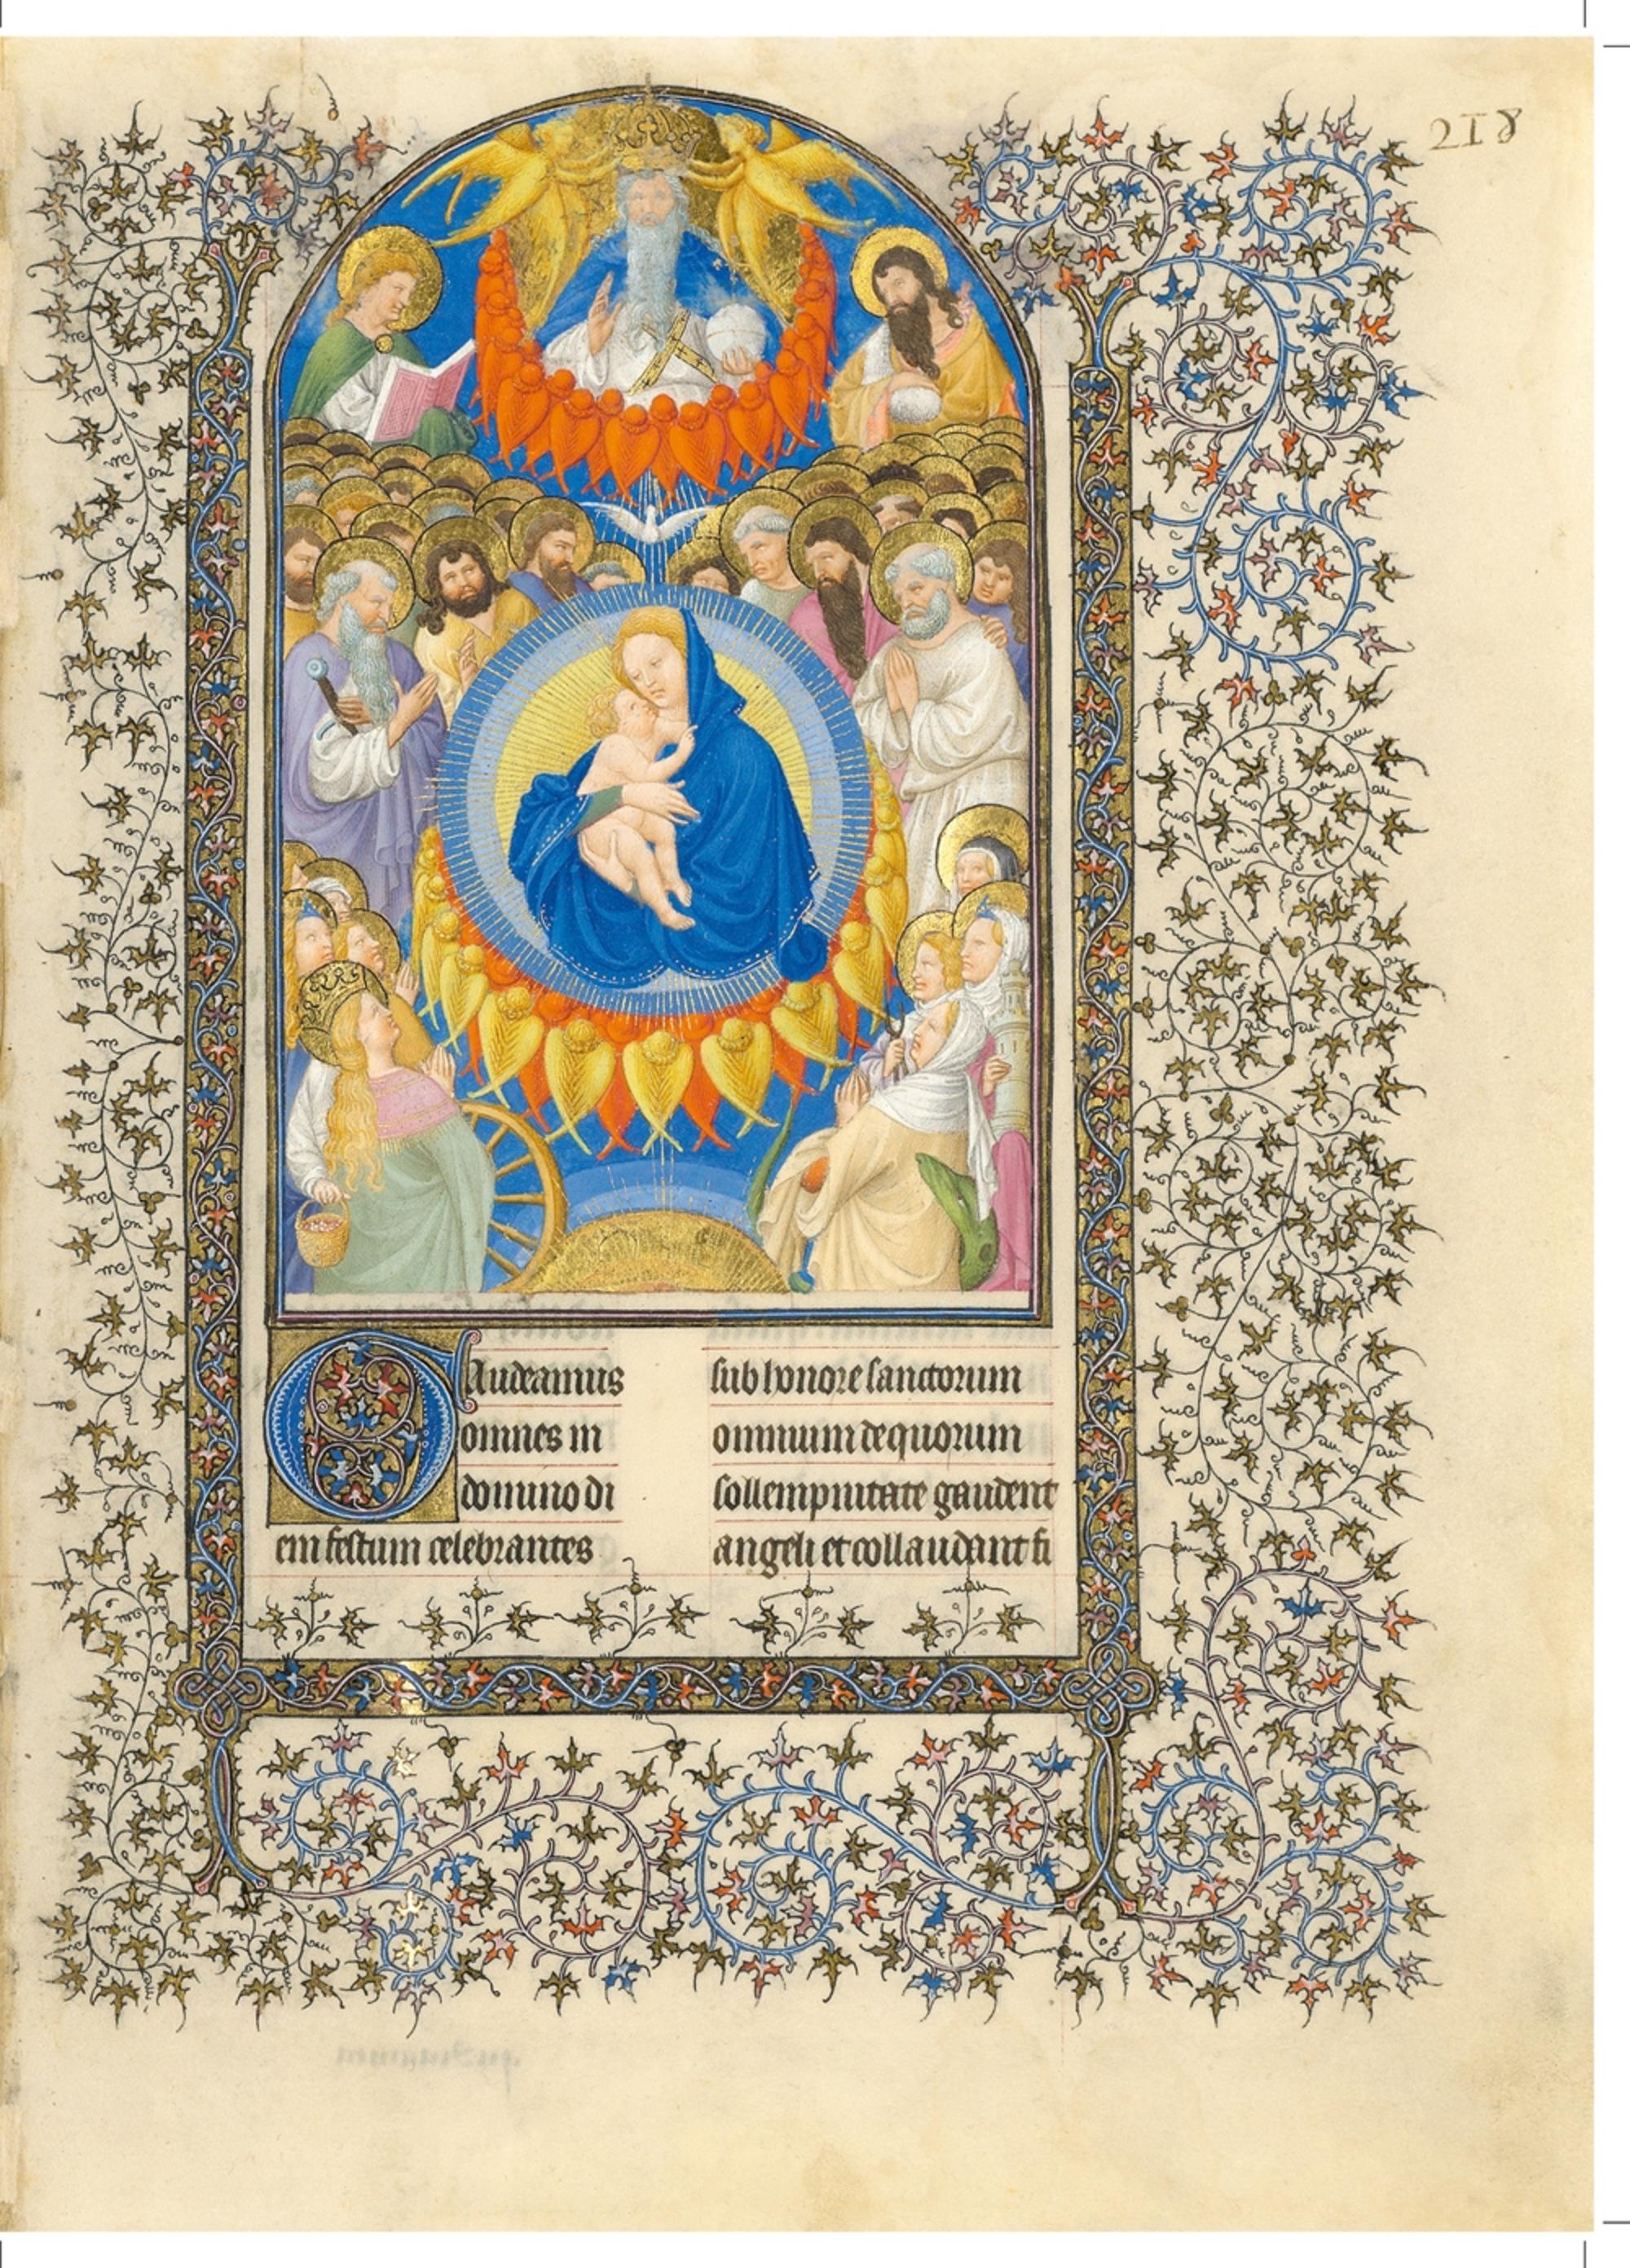 218
Gaudeamus
omnes in
domino di
em festum celebrantes
sub honore sanctorum
omnium de quorum
sollempnitate gaudent
angeli et collaudant fi